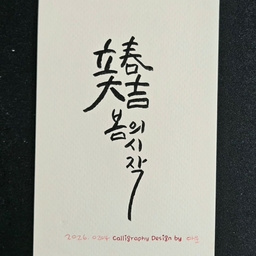 立春
大吉
봄의
시작
Calligraphy Design by